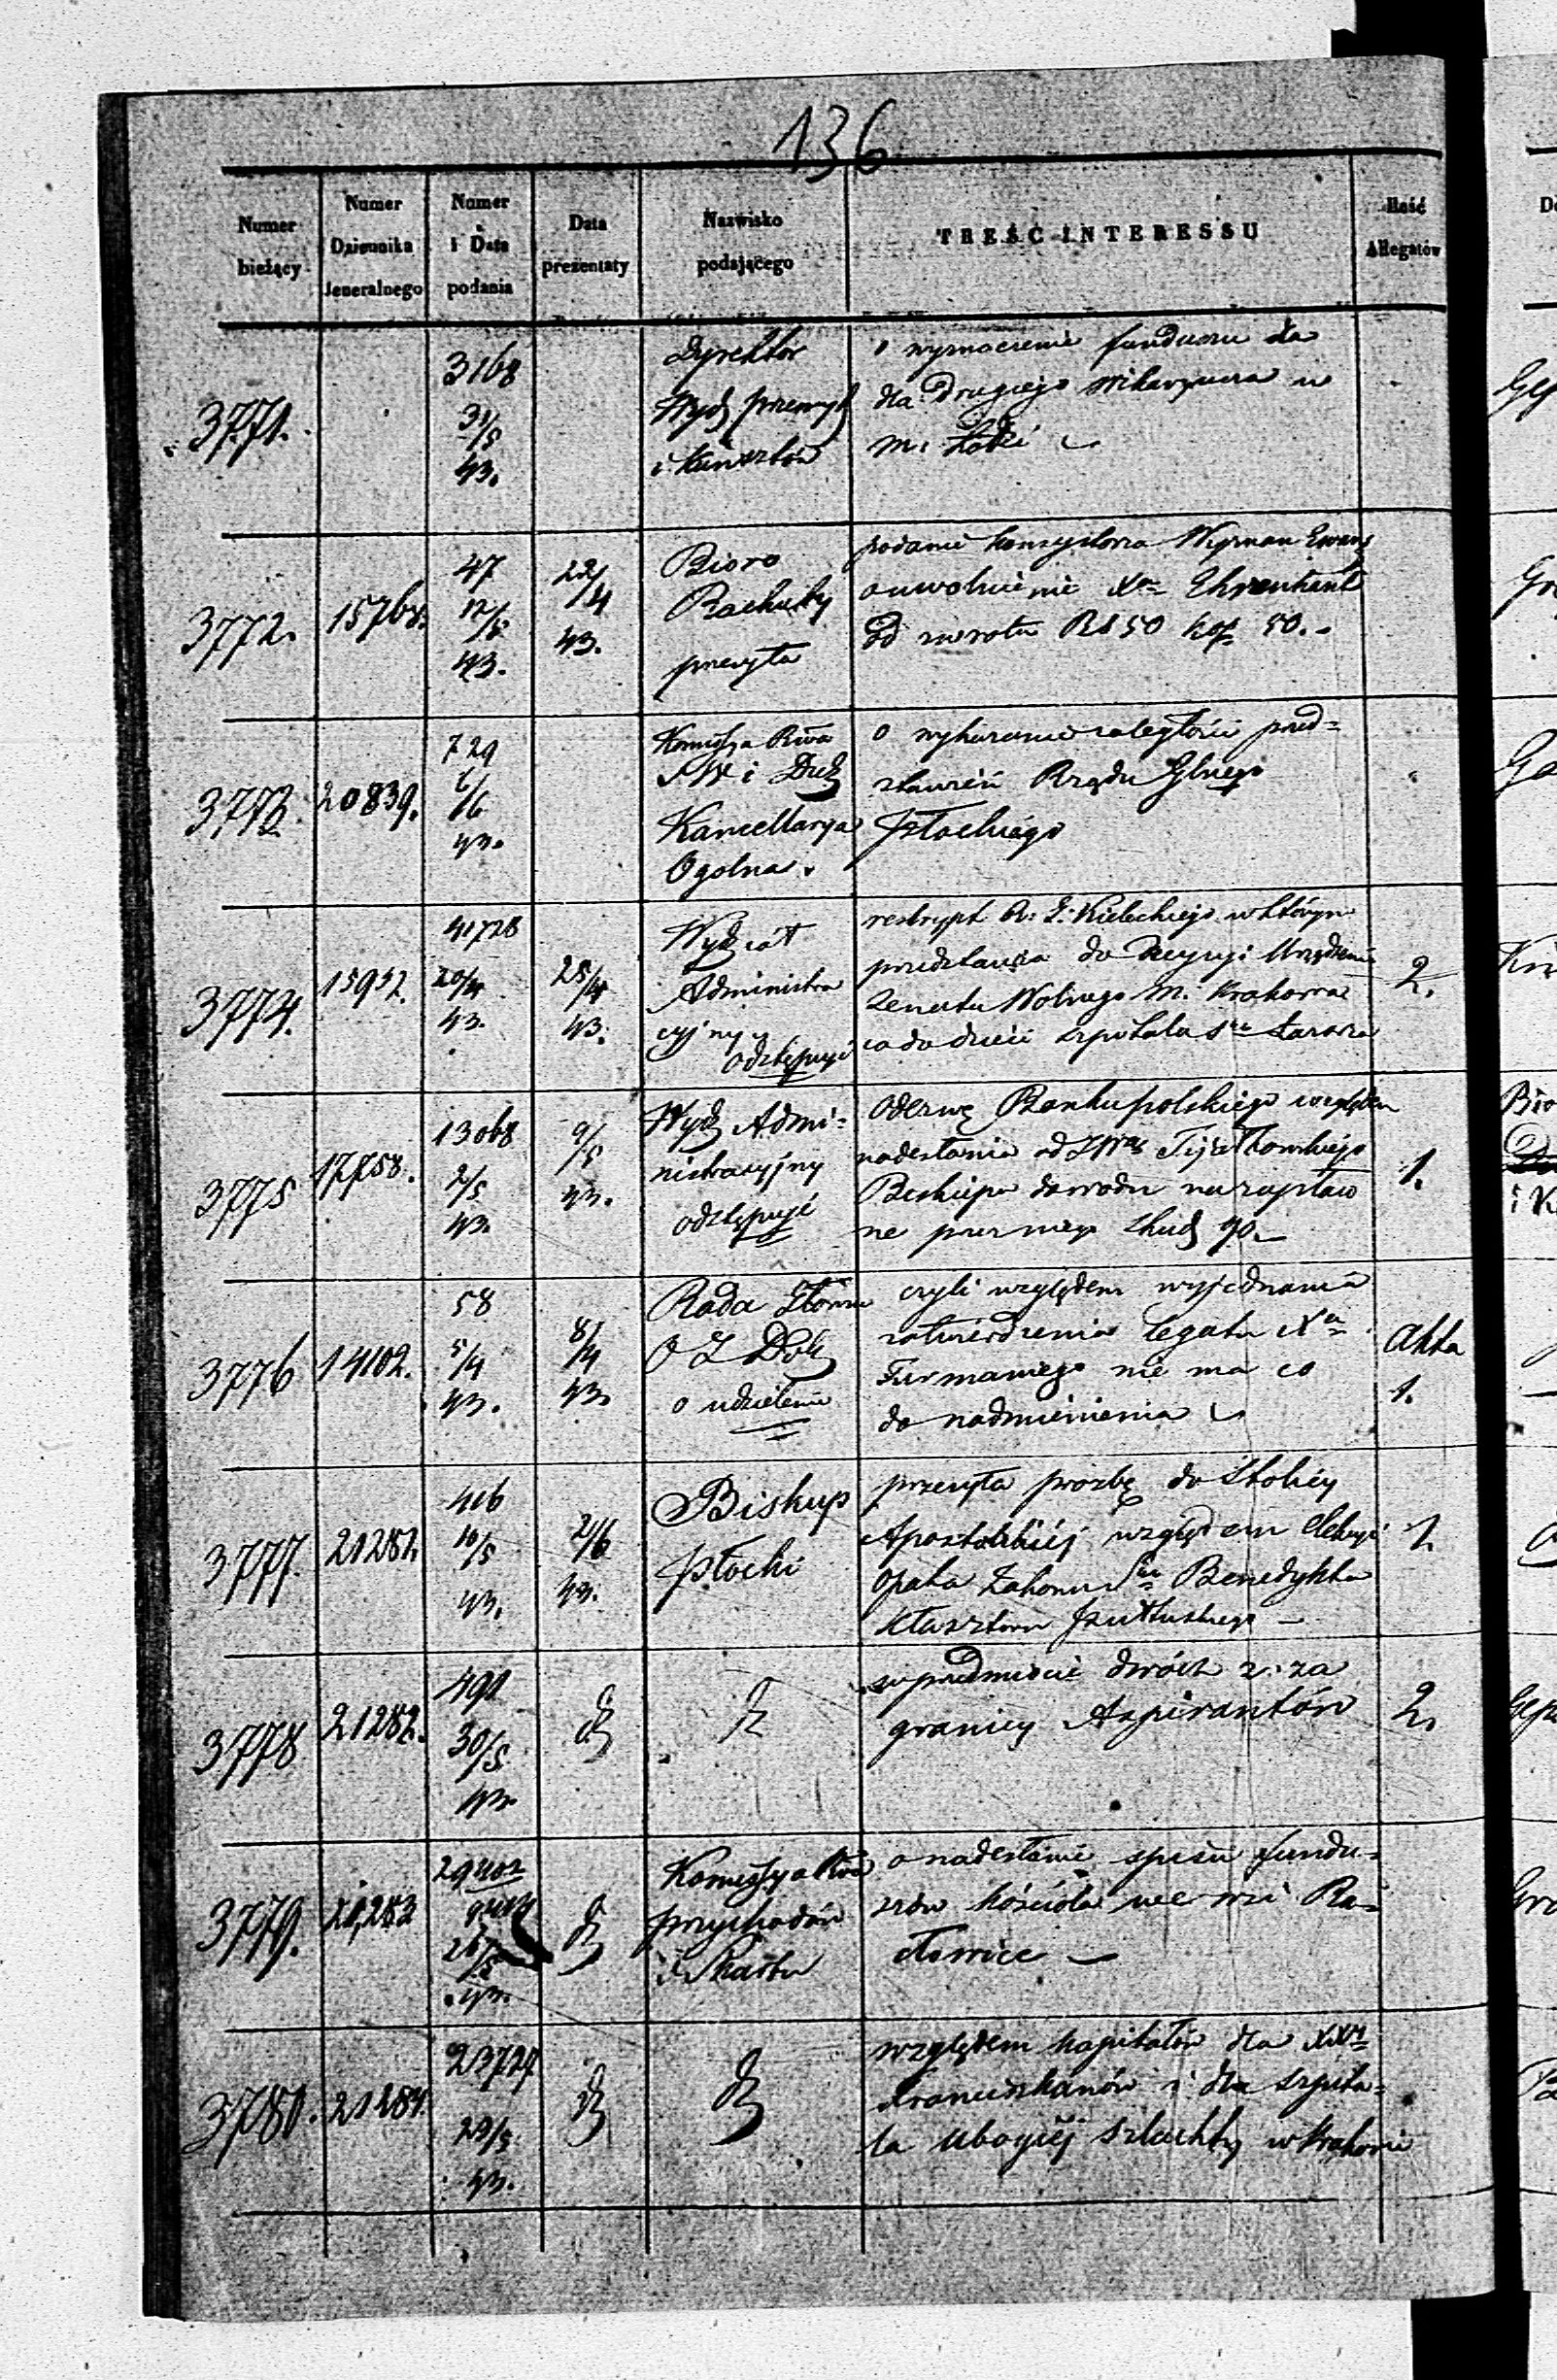 136
Numer bieżący
Numer Dziennika Jeneralnego
Numer i Data podania
Data prezentaty
Nazwisko podającego
TREŚĆ INTERESSU
Ilość Allegatów
3771.
3168
31/5
43.
Dyrektor
Wydz przemysł
i kunsztów
o wyznaczenie funduszu dla
dla drugiego wikaryusza w
m. Łodzi
3772.
15768.
47
12/5
43.
22/4
43.
Bióro
Rachuby
przesyła
podanie konsystorza Wyznan Ewang
o uwolnienie Xa
od zwrotu RS 50 kop 50.
3773.
20839.
729
1/6
43.
Komissya
SW i Duch
Kancellarya
Ogolna
o wykazanie zaległości przed=
stawień Rządu Gbnego
Płockiego
3774.
15952.
41728
20/4
43.
25/4
43.
Wydział
Administra
cyjny
odstępuje
reskrypt R: G: Kieleckiego w którym
przedstawia do decyzyi
Senatu Wolnego M. Krakowa
co do dzieci szpitala Sgo Łazarza
2.
3775
17758.
13068
2/5
43.
9/5
43.
Wydz Admi=
nistracyjny
odstępuje
odezwę Banku polskiego względem
nadesłania od
Biskupa dowodu na zapłaco
ne przez niego 90.
1.
3776
14102.
58
5/4
43.
8/4
43.
Rada Główna
O Z Dob
o udzielenie
czyli względem wyjednania
zatwierdzenia legatu Xa
Furmaniego nie ma co
do nadmienienia
Akta
1.
3777.
21281.
416
10/5
43.
2/6
43.
Biskup
płocki
przesyła prośbę do Stolicy
Apostolskiéj względem elekcyi
Opata Zakonu Sgo Benedykta
klasztoru pułtuskiego
1.
3778
21282.
491
30/5
43.
d
d
w przedmiocie dwóch z za
granicy Aspirantów
2.
3779.
21,283
29402
26/5
43.
d
Komissya
przychodów
i Skarbu
o nadesłanie spisu fundu=
szów kościoła we wsi Ra=
cławice
3780.
21284.
23727
29/5
43.
d
d
względem kapitałów dla XX
Franciszkanów i dla szpita=
la ubogiéj szlachty w Krakowie